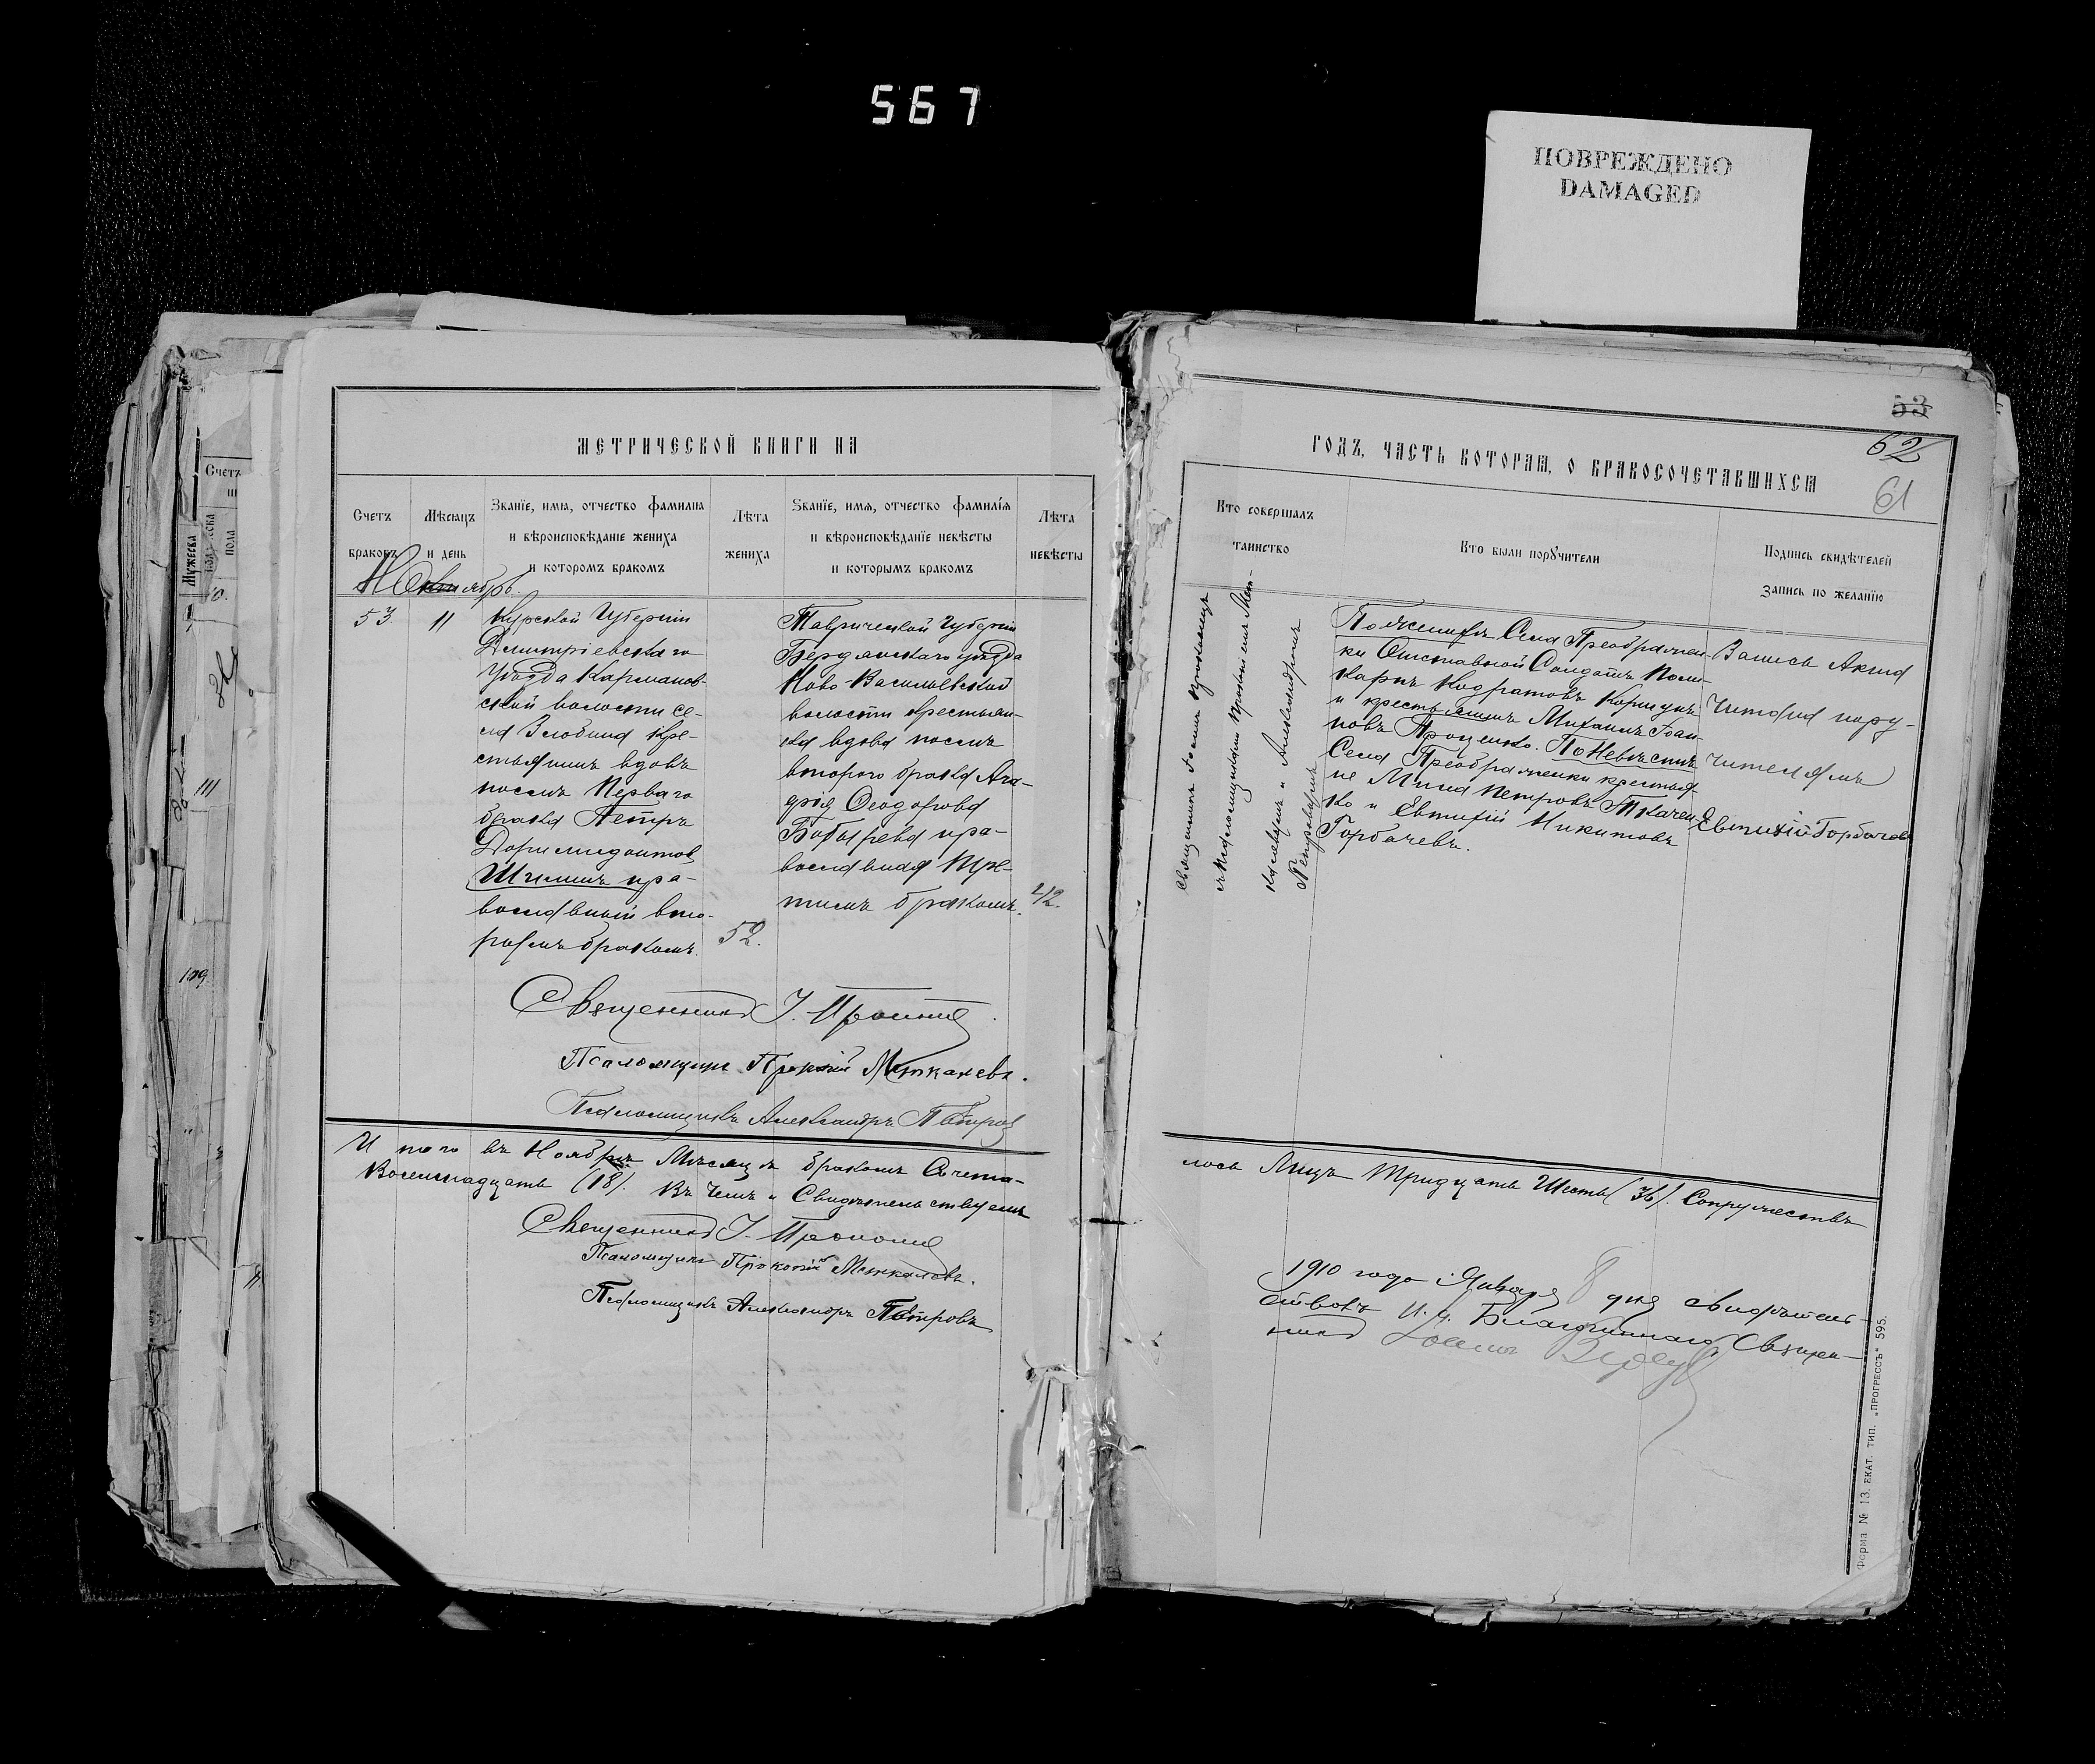 567
ПОВРЕЖДЕНО
DAMAGED
МЕТРИЧЕСКОЙ КНИГИ НА
Счетъ
браковъ
Мѣсяцъ
и день
Званїе, имя, отчество фамилїя
и вѣроисповѣданїе жениха
и которомъ бракомъ
Лѣта
жениха
Званїе, имя, отчество фамилїя
и вѣроисповѣданїе невѣсты
и которымъ бракомъ
Лѣта
невѣсты
53
11
Курской Губерніи
Дмитріевскаго
Уѣзда Карманов-
ской волости се-
ла Злобина кре-
стьянинъ вдовъ
послѣ Перваго
брака Петръ
Доримедонтов
пра-
вославный вто-
рымъ бракомъ.
52.
Таврической Губерніи
Бердянскаго уѣзда
Ново-Васильевской
волости крестьян-
ка вдова послѣ
второго брака Ага-
фія Ѳеодорова
Бобырева пра-
вославная Тре-
тимъ бракомъ.
42.
Священникъ І.
Псаломщикъ Прокопій
Псаломщикъ Александръ Петровъ
И того въ Ноябрѣ Мѣсяцѣ бракомъ Сочета-
Восемнадцать (18). Въ чемъ и Свидѣтельствуемъ
Священникъ І.
Псаломщикъ Прокопій
Псаломщикъ Александръ Петровъ
53
62
61
ГОДЪ, ЧАСТЬ ВТОРАЯ, О БРАКОСОЧЕТАВШИХСЯ
Кто совершалъ
таинство
Кто были поручители
Подпись свидѣтелей
запись по желанїю
Священникъ Іоаннъ
съ Псаломщиками Прокопіемъ
и Александромъ
Петровымъ
По женихѣ Села Преображен-
ки Отставной Солдатъ Поли-
карпъ Кодратовъ Коршунъ
и крестьянинъ Михаилъ Іоан-
новъ Проценко. По Невѣстѣ
Села Преображенки крестья-
не Мина Петровъ Ткачен-
ко и Евтихій Никитовъ
Горбачевъ.
Запись Акта
Читана пору-
чителямъ
Евтихій Горбачов
лось Лицъ Тридцать Шесть (36). Супружествъ
1910 года Января 8 дня свидѣтель-
ствовъ И. д. Благочиннаго Священ-
никъ
Форма № 13. ЕКАТ. ТИП. „ПРОГРЕССЪ“ 595.
Счетъ
Мужеска
пола
111
109